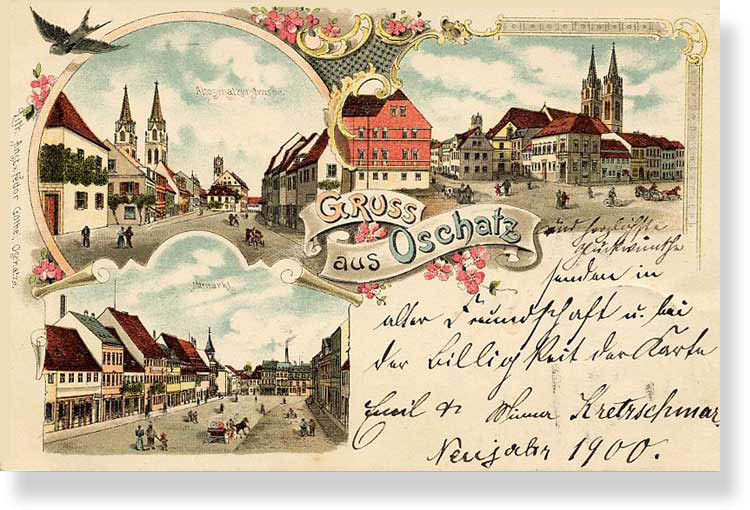 Altoschatzerstrasse.
GRUSS
aus Oschatz
Neumarkt
Lith. Anst. Fedor Göthel, Oschatz.
und herzlichste
Glückwünsche
senden in
alter Freundschaft u. bei
der Billigkeit der Karte
Emil & Minna Kretzschmar
Neujahr 1900.